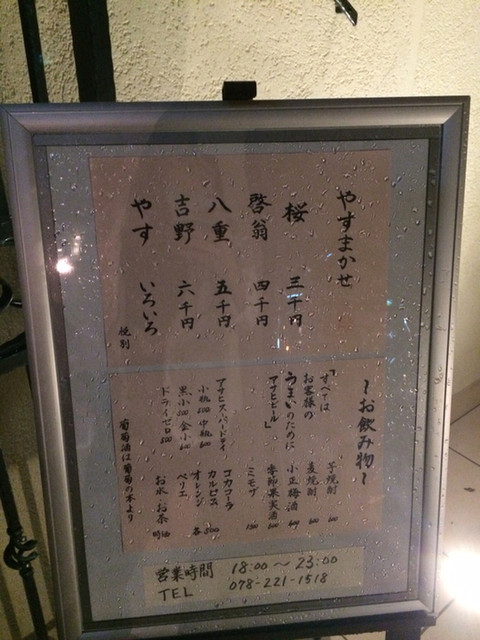 やすまかせ
桜 三千円
啓翁 四千円
八重 五千円
吉野 六千円
やす いろいろ
税別
～お飲み物～
「すべては
お客様の
うまいのために
アサヒビール」
アサヒスーパードライ
小瓶 500 中瓶 600
黒小 500 金小 500
ドライゼロ 500
葡萄酒は葡萄の本より
芋焼酎 600
麦焼酎 600
小正梅酒
季節果実酒
ミモザ
コカコーラ
カルピス
オレンジ
ペリエ 各500
お水 お茶
営業時間 18:00～23:00
TEL 078-221-1518